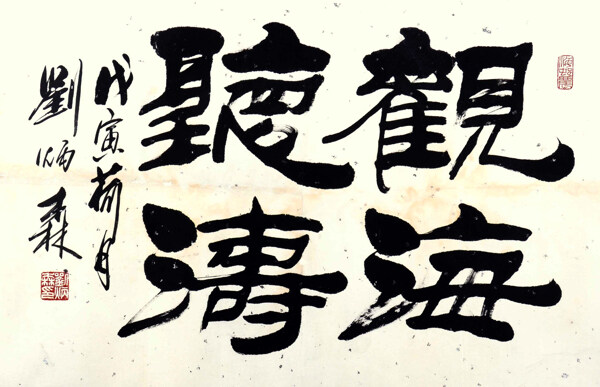 觀海
聽濤
戊寅荷月
劉炳森
劉炳
森印